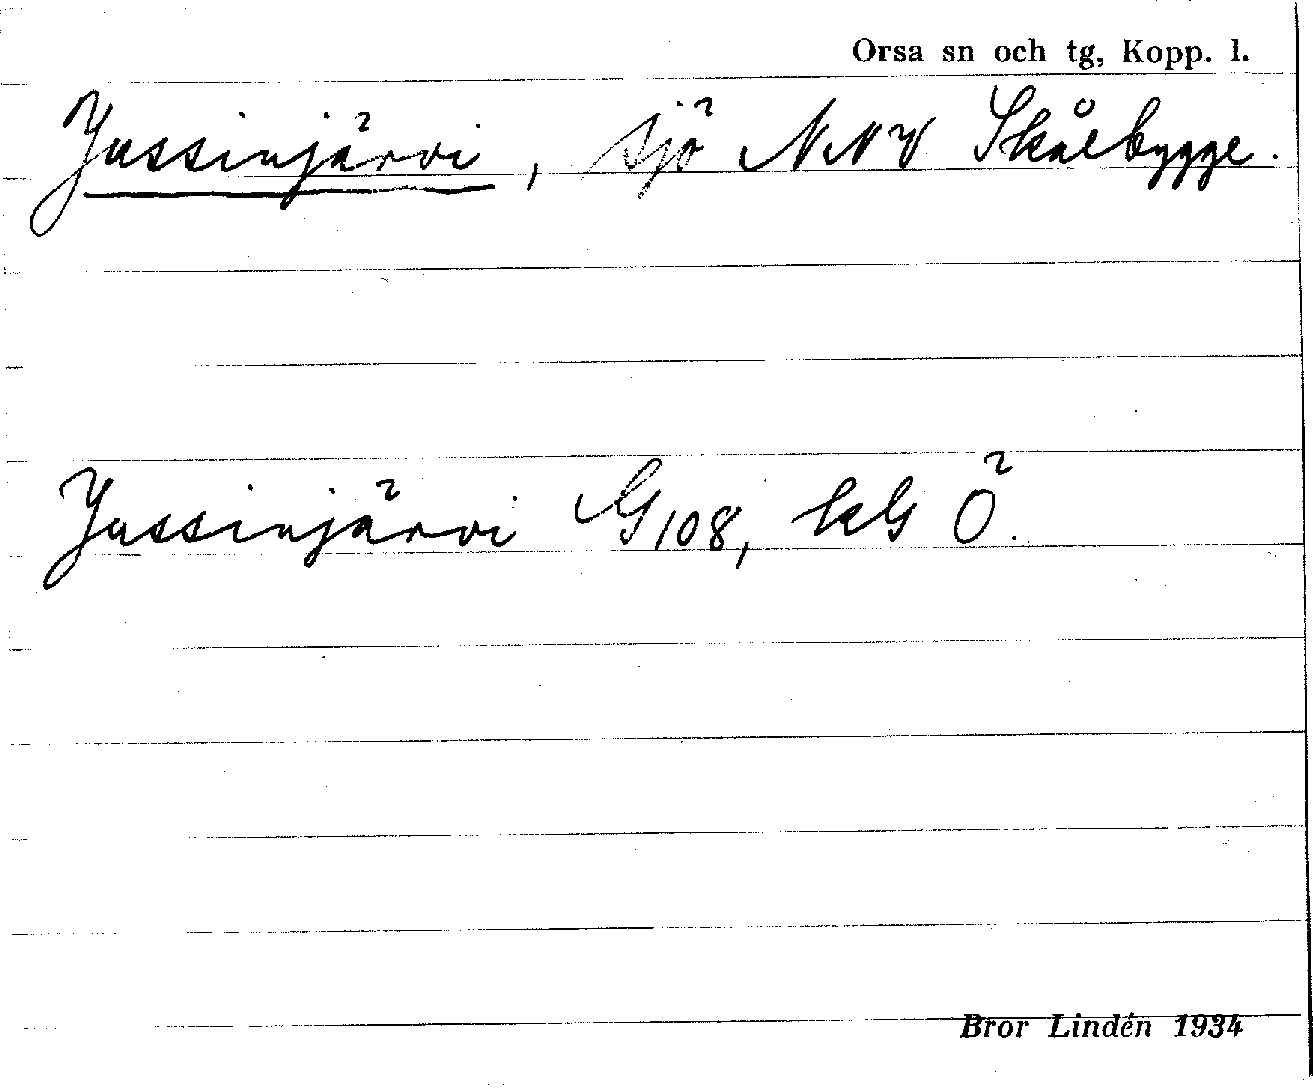 Orsa sn och tg, Kopp. l.
Jussinjärvi, sjö NNV Skålbygge.
Jussinjärvi G108, kG Ö.
Bror Lindén 1934